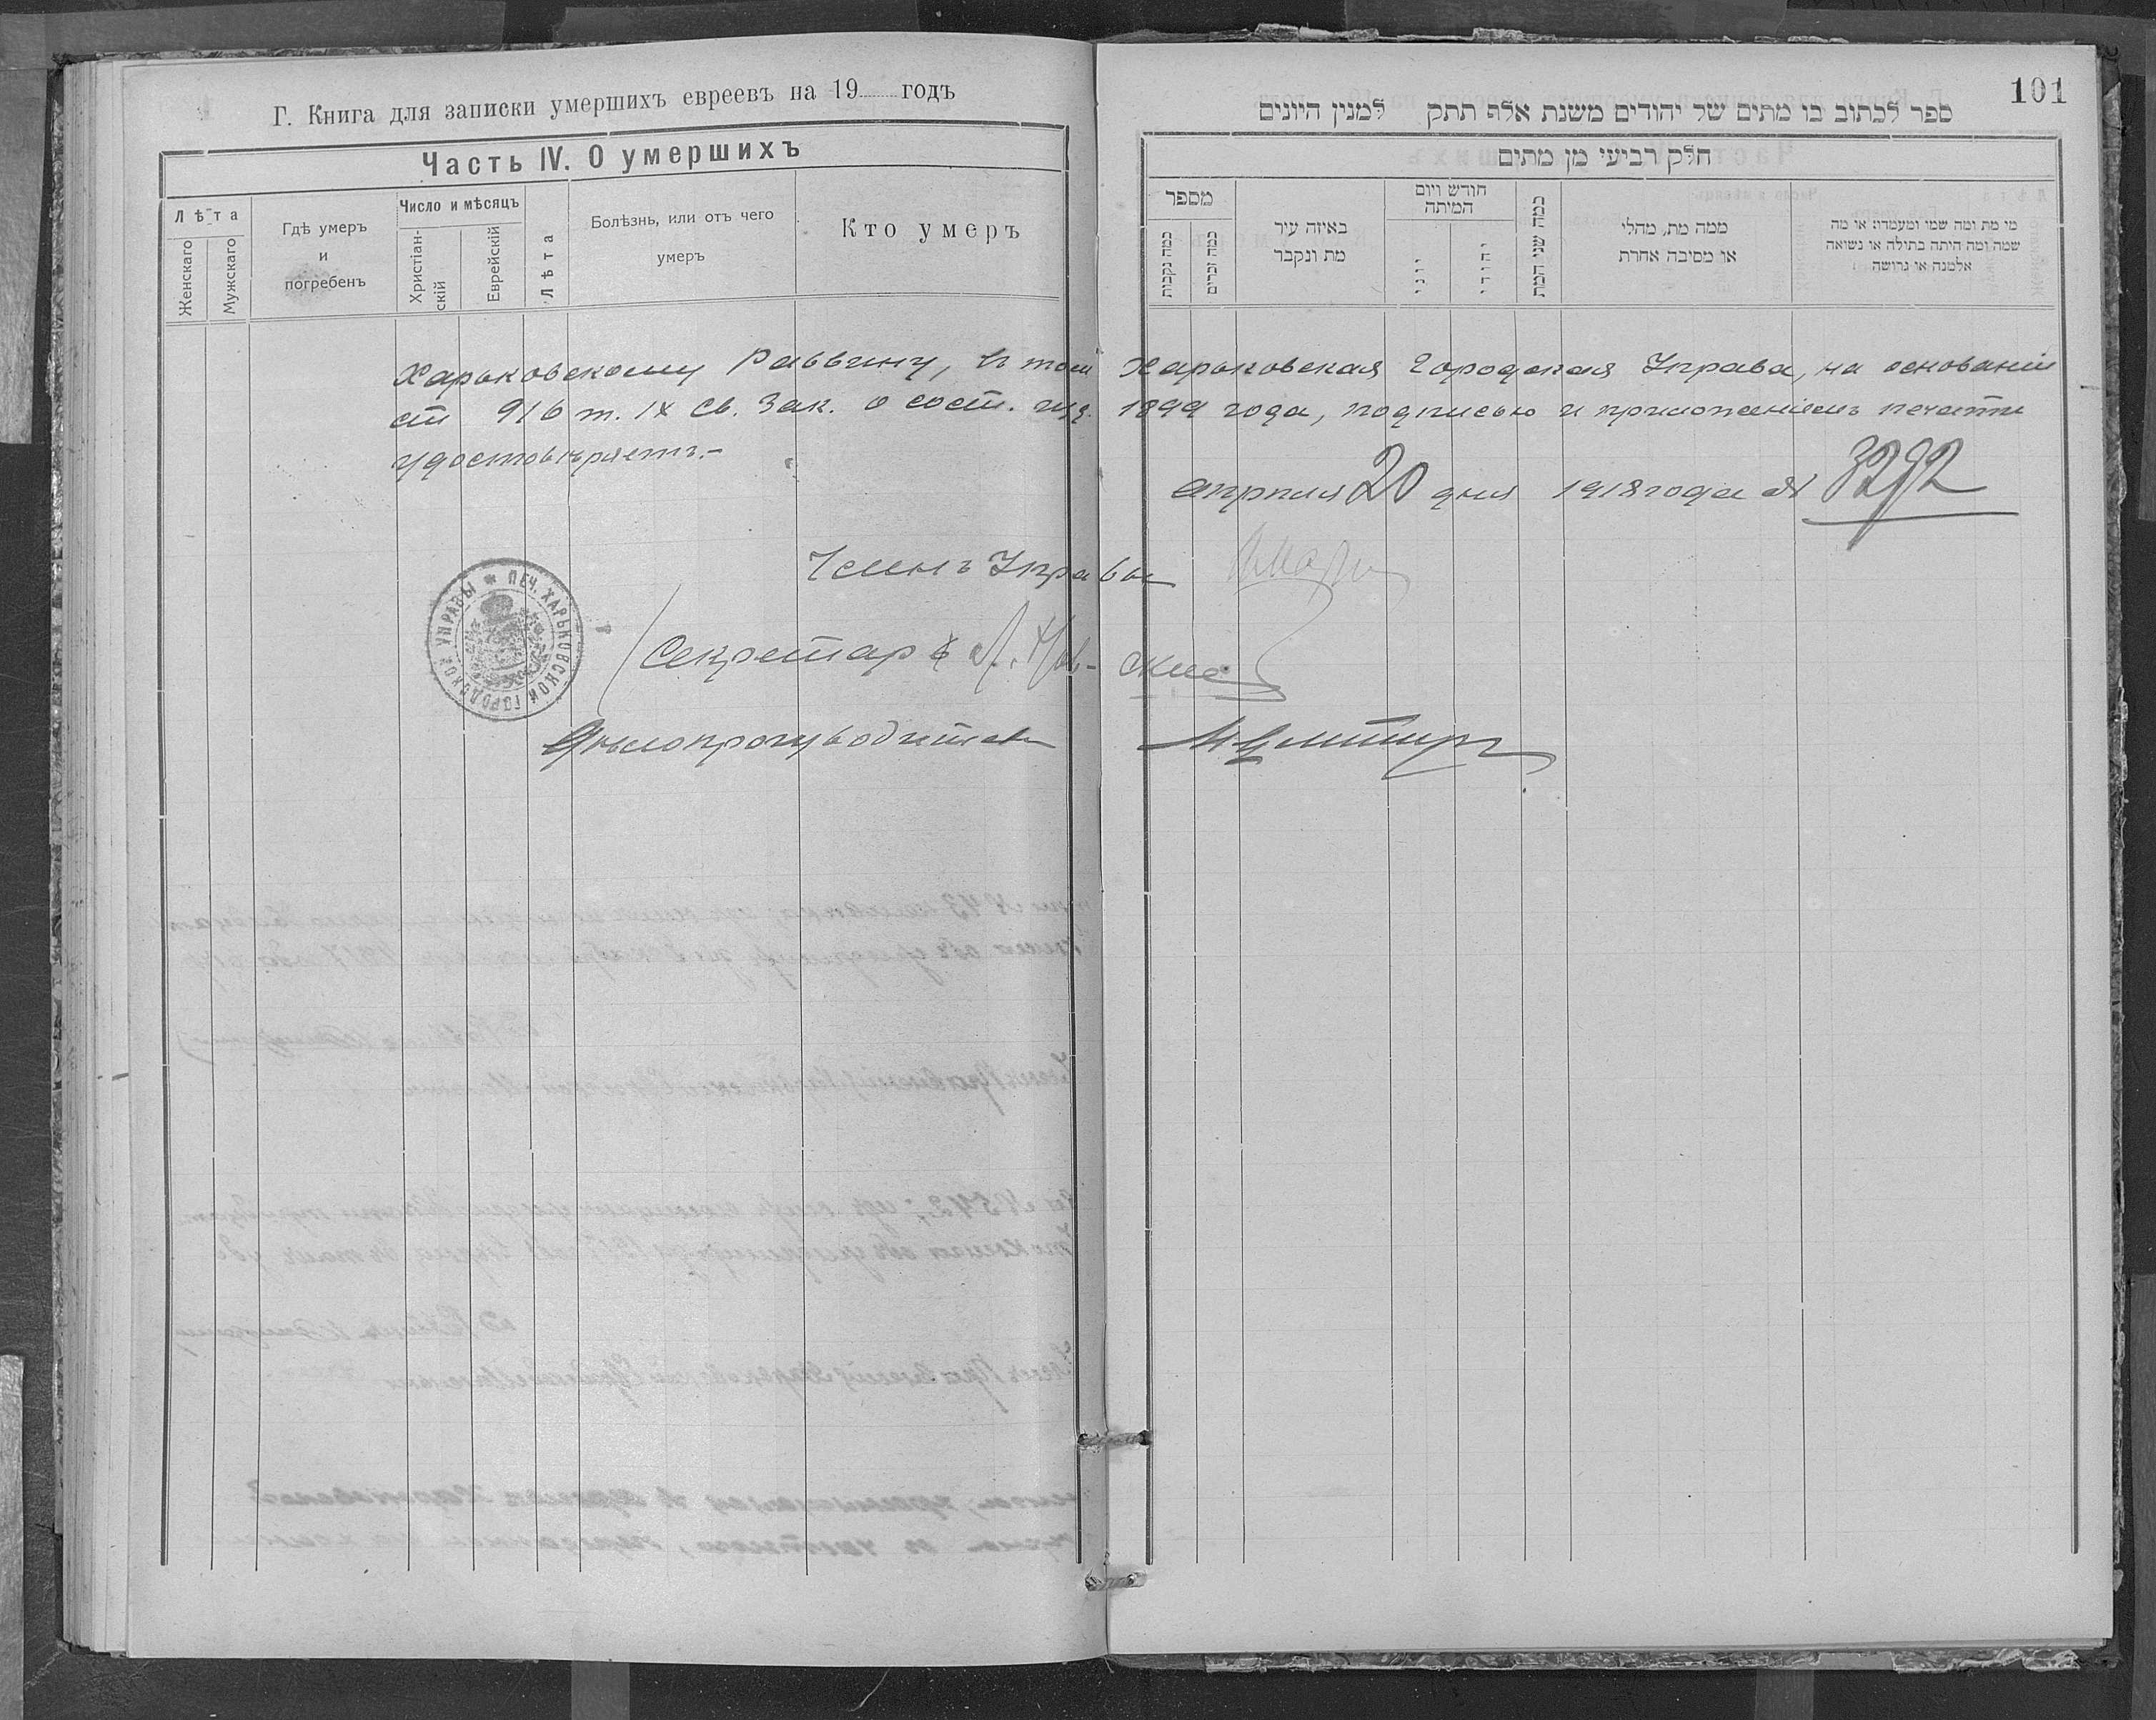 Г. Книга для записки умершихъ евреевъ на 19 годъ
Часть IV. О умершихъ
Лѣта
Женскаго
Мужскаго
Гдѣ умеръ
и
погребенъ
Число и мѣсяцъ
Христіан-
скій
Еврейскій
Лѣта
Болѣзнь, или отъ чего
умеръ
Кто умеръ
101
ספר לכתוב בו מתים של יהודים משנת אלף תתק למנין היונים
חלק רביעי מן מתים
מספר
כמה נקבות
כמה זכרים
באיזה עיר
מת ונקבר
חודש ויום
המיתה
יוני
יהודי
כמה שני המת
ממה מת, מחלי
או מסיבה אחרת
מי מת ומה שמו ומעמדו: או מה
שמה ומה היתה בתולה או נשואה
אלמנה או גרושה
Харьковскому Раввину, въ томъ Харьковская Городская Управа, на основаніи
ст 916 т. IX Св. Зак. о сост. изд. 1899 года, подписью и приложеніемъ печати
удостовѣряетъ.-
апрѣля 20 дня 1918 года № 3292
Членъ Управы
Секретарь
Дѣлопроизводитель
ПЕЧ. ХАРЬКОВСКОЙ ГОРОДСКОЙ УПРАВЫ